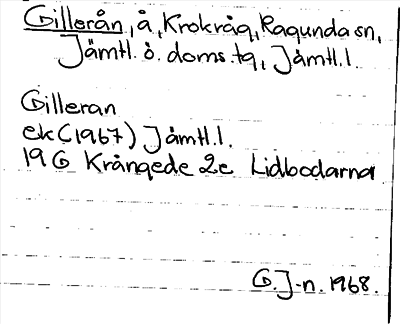 Gillerån, å, Krokråg, Ragunda sn,
Jämtl. ö. doms. tg, Jämtl. l.
Gilleran
ek (1967) Jämtl. l.
19 G Krångede 2e Lidbodarna
G. J-n. 1968.